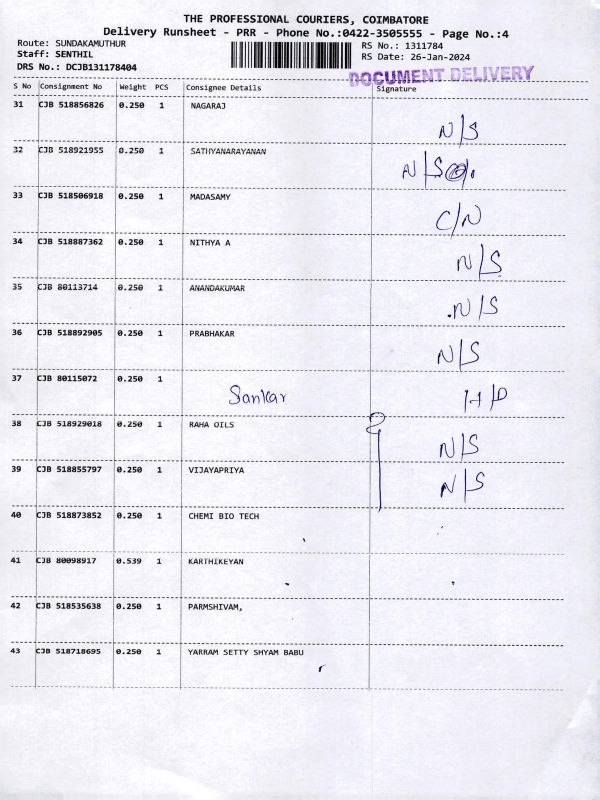 THE PROFESSIONAL COURIERS, COIMBATORE
Delivery Runsheet - PRR - Phone No.:0422-3505555 - Page No.:4
Route: SUNDAKAMUTHUR
Staff: SENTHIL
DRS No.: DCJB131178404
RS No.: 1311784
RS Date: 26-Jan-2024
DOCUMENT DELIVERY
S No Consignment No Weight PCS Consignee Details Signature
31 CJB 518856826 0.250 1 NAGARAJ N/S
32 CJB 518921955 0.250 1 SATHYANARAYANAN N/S
33 CJB 518506918 0.250 1 MADASAMY C/N
34 CJB 518887362 0.250 1 NITHYA A N/S
35 CJB 80113714 0.250 1 ANANDAKUMAR N/S
36 CJB 518892905 0.250 1 PRABHAKAR N/S
37 CJB 80115072 0.250 1 Sankar H/D
38 CJB 518929018 0.250 1 RAHA OILS N/S
39 CJB 518855797 0.250 1 VIJAYAPRIYA N/S
40 CJB 518873852 0.250 1 CHEMI BIO TECH
41 CJB 80098917 0.539 1 KARTHIKEYAN
42 CJB 518535638 0.250 1 PARMSHIVAM,
43 CJB 518718695 0.250 1 YARRAM SETTY SHYAM BABU